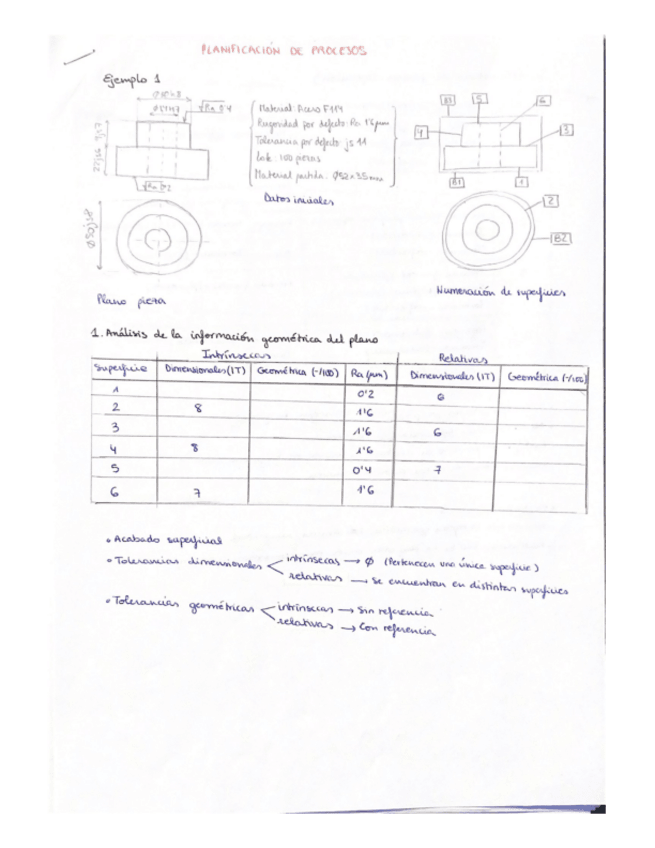 PLANIFICACIÓN DE PROCESOS
Ejemplo 1
Ra 0'4
Material: Acero F114
Rugosidad por defecto: Ra 1'6µm
Tolerancia por defecto: js 11
Lote: 100 piezas
Material partida: Ø52x35 mm
Datos iniciales
Ø50js8
B1
5
6
4
3
B1
1
2
B2
Plano pieza
Numeración de superficies
1. Análisis de la información geométrica del plano
Intrínsecas Relativas
Superficie Dimensionales (IT) Geométrica (-/100) Ra (µm) Dimensionales (IT) Geométrica (-/100)
1 0'2 6
2 8 1'6
3 1'6 6
4 8 1'6
5 0'4 7
6 7 1'6
• Acabado superficial
• Tolerancias dimensionales intrínsecas → Ø (Pertenecen una única superficie)
relativas → Se encuentran en distintas superficies
• Tolerancias geométricas intrínsecas → Sin referencia
relativas → Con referencia